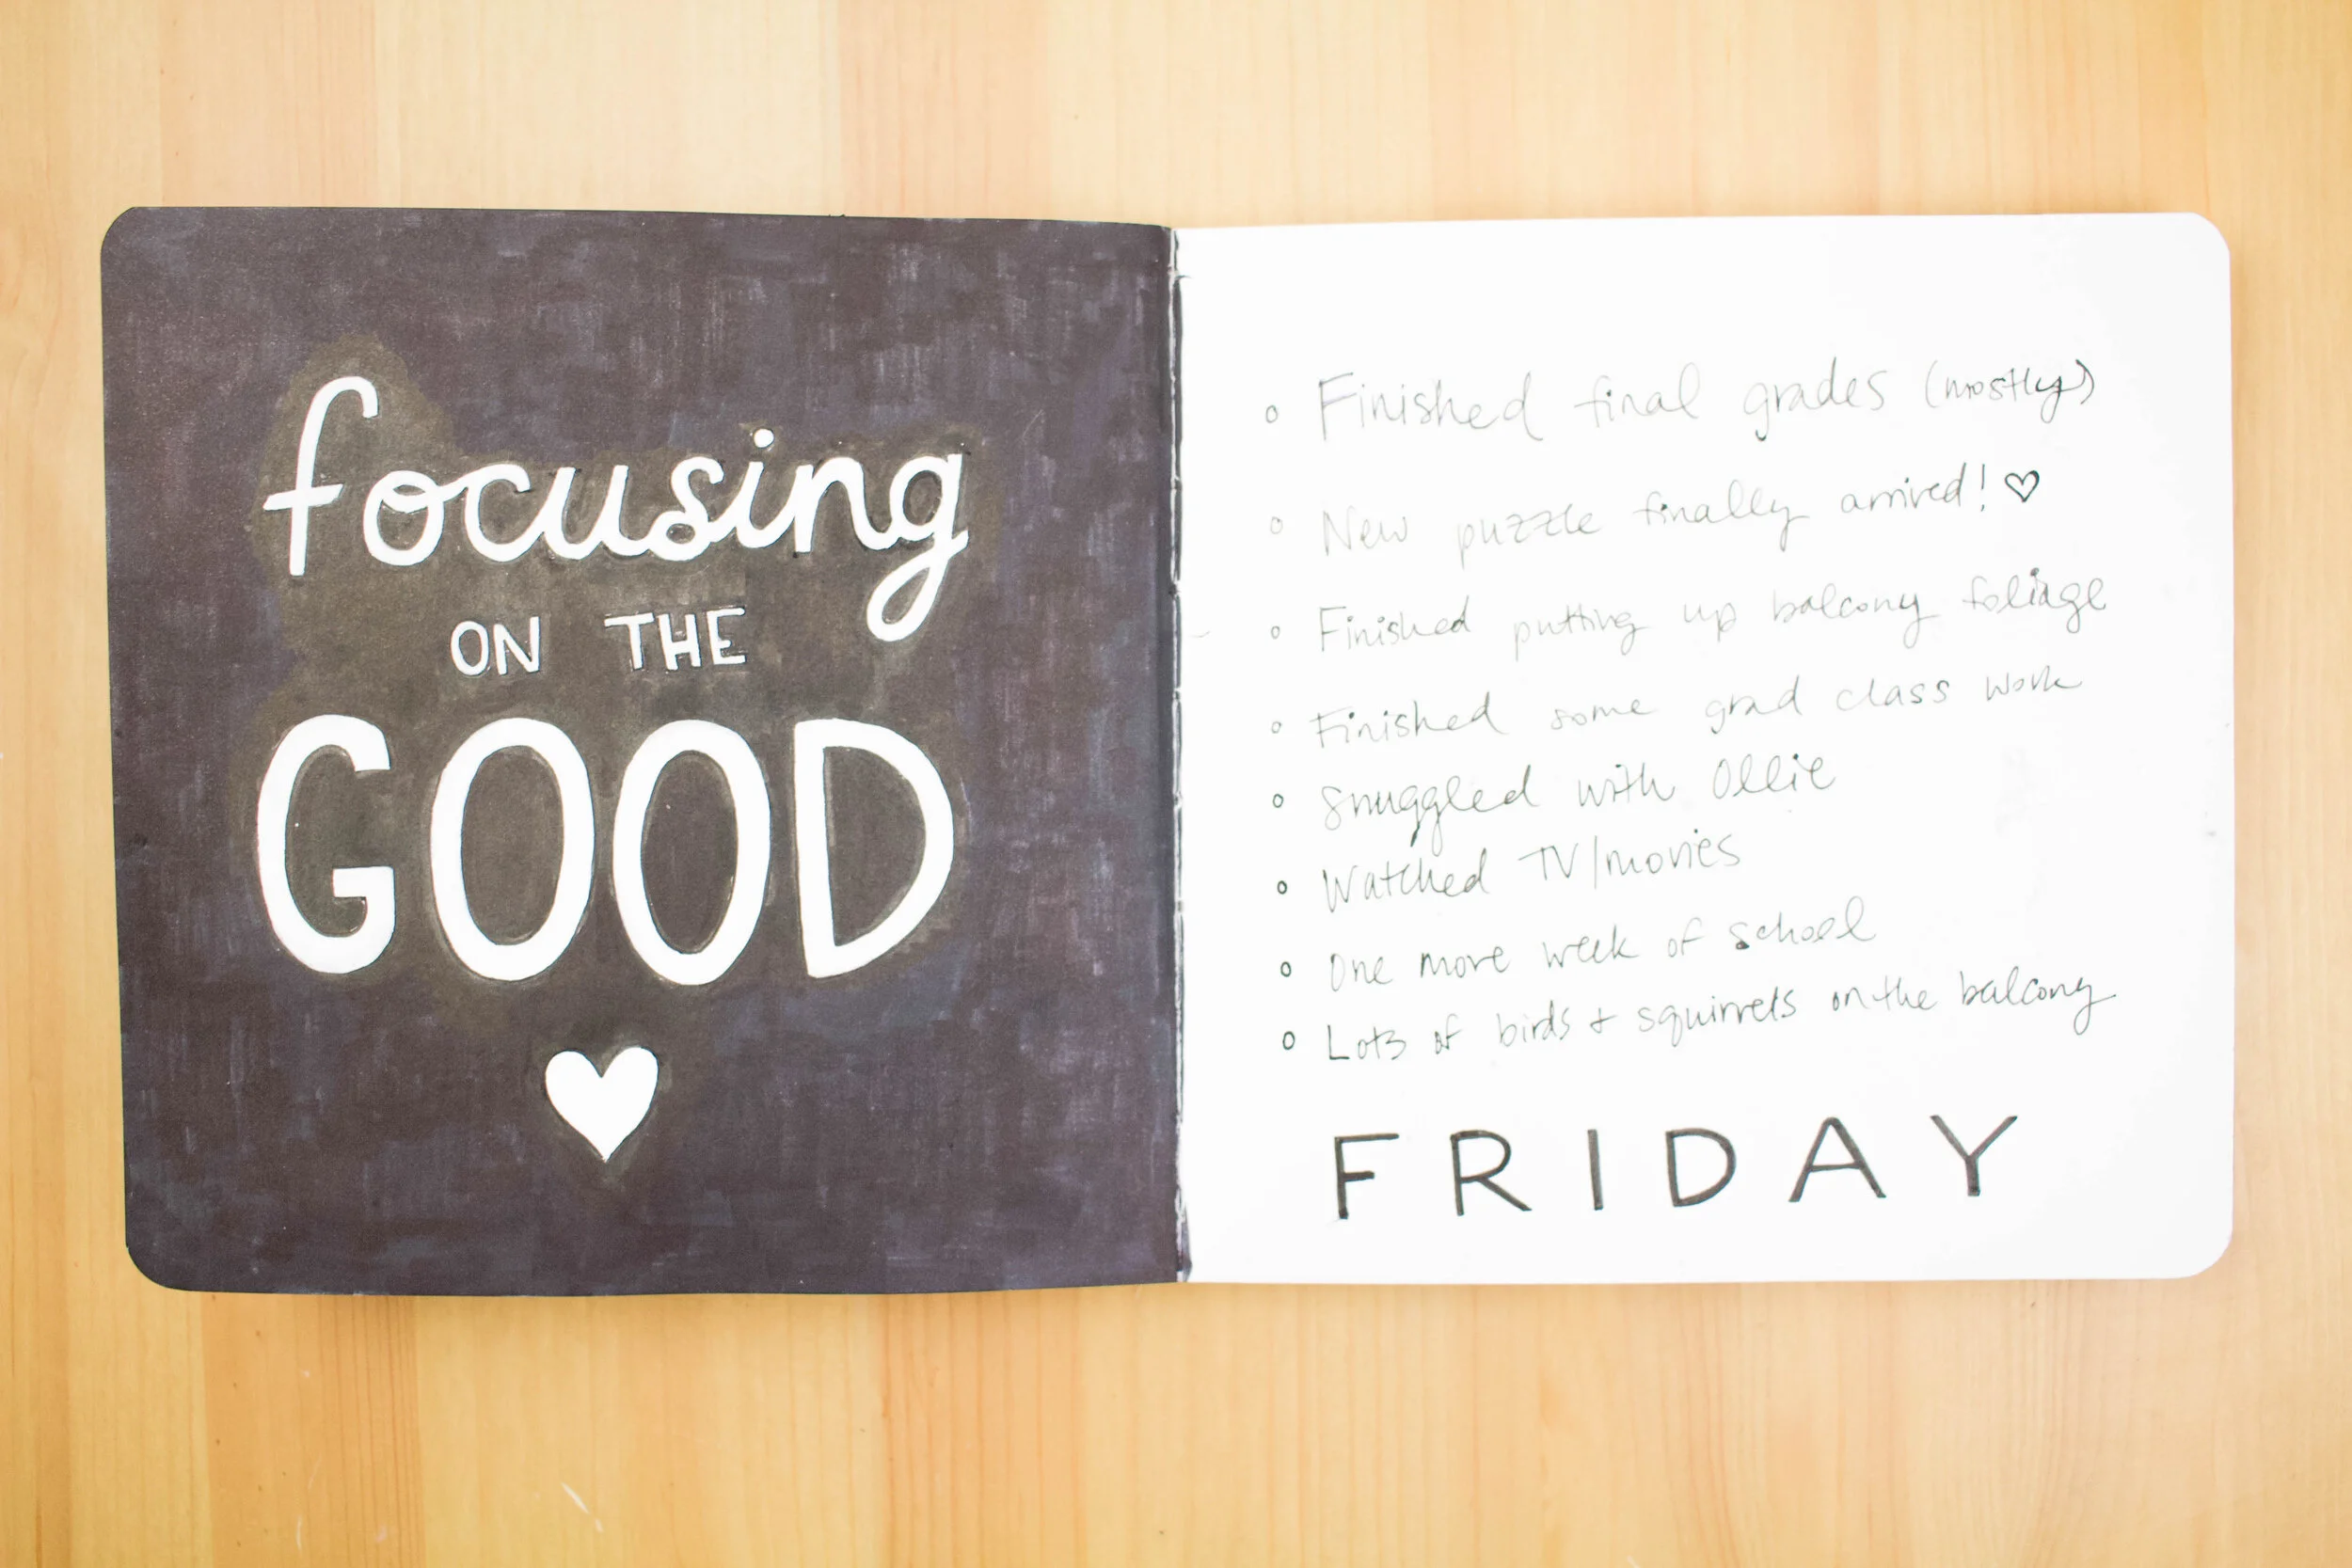 focusing
ON THE
GOOD
Finished final grades (mostly)
New puzzle finally arrived! ♡
Finished putting up balcony foliage
Finished some grad class work
Snuggled with Ollie
Watched TV/movies
One more week of school
Lots of birds + squirrels on the balcony
FRIDAY